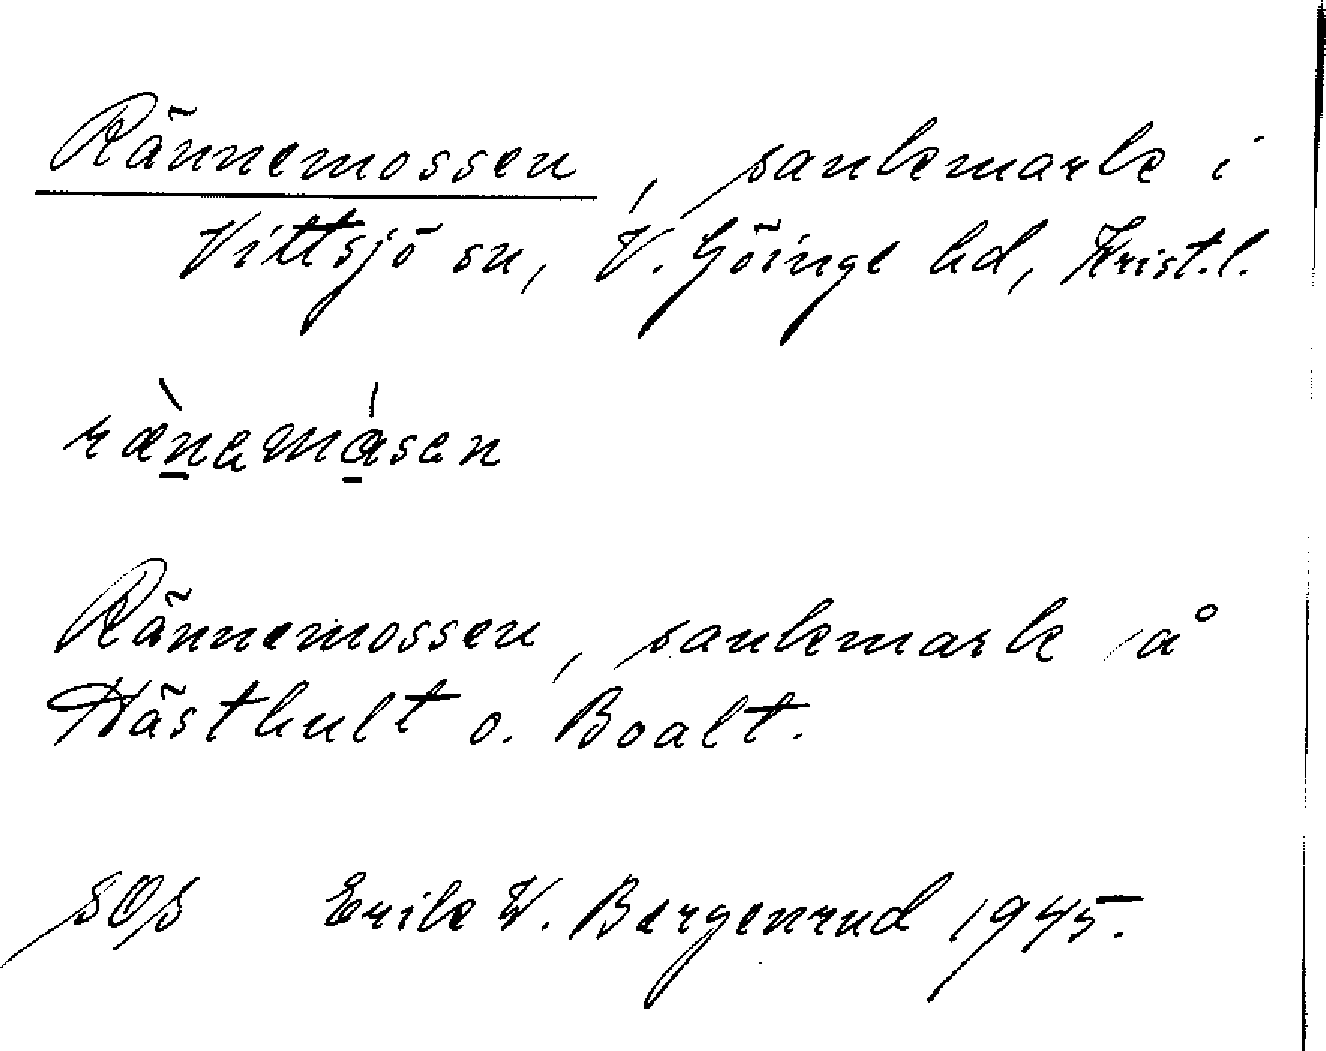 Rännemossen, sankmark i
Vittsjö sn, V. Göinge hd, Krist.l.
rænamåsen
Rännemossen, sankmark å
Hästhult o. Boalt.
SOS Erik W. Bergenrud 1945.